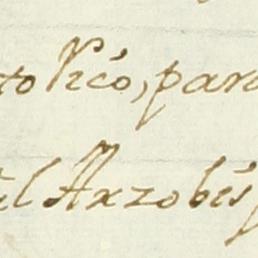 to Pıco, para
el Arzobisp